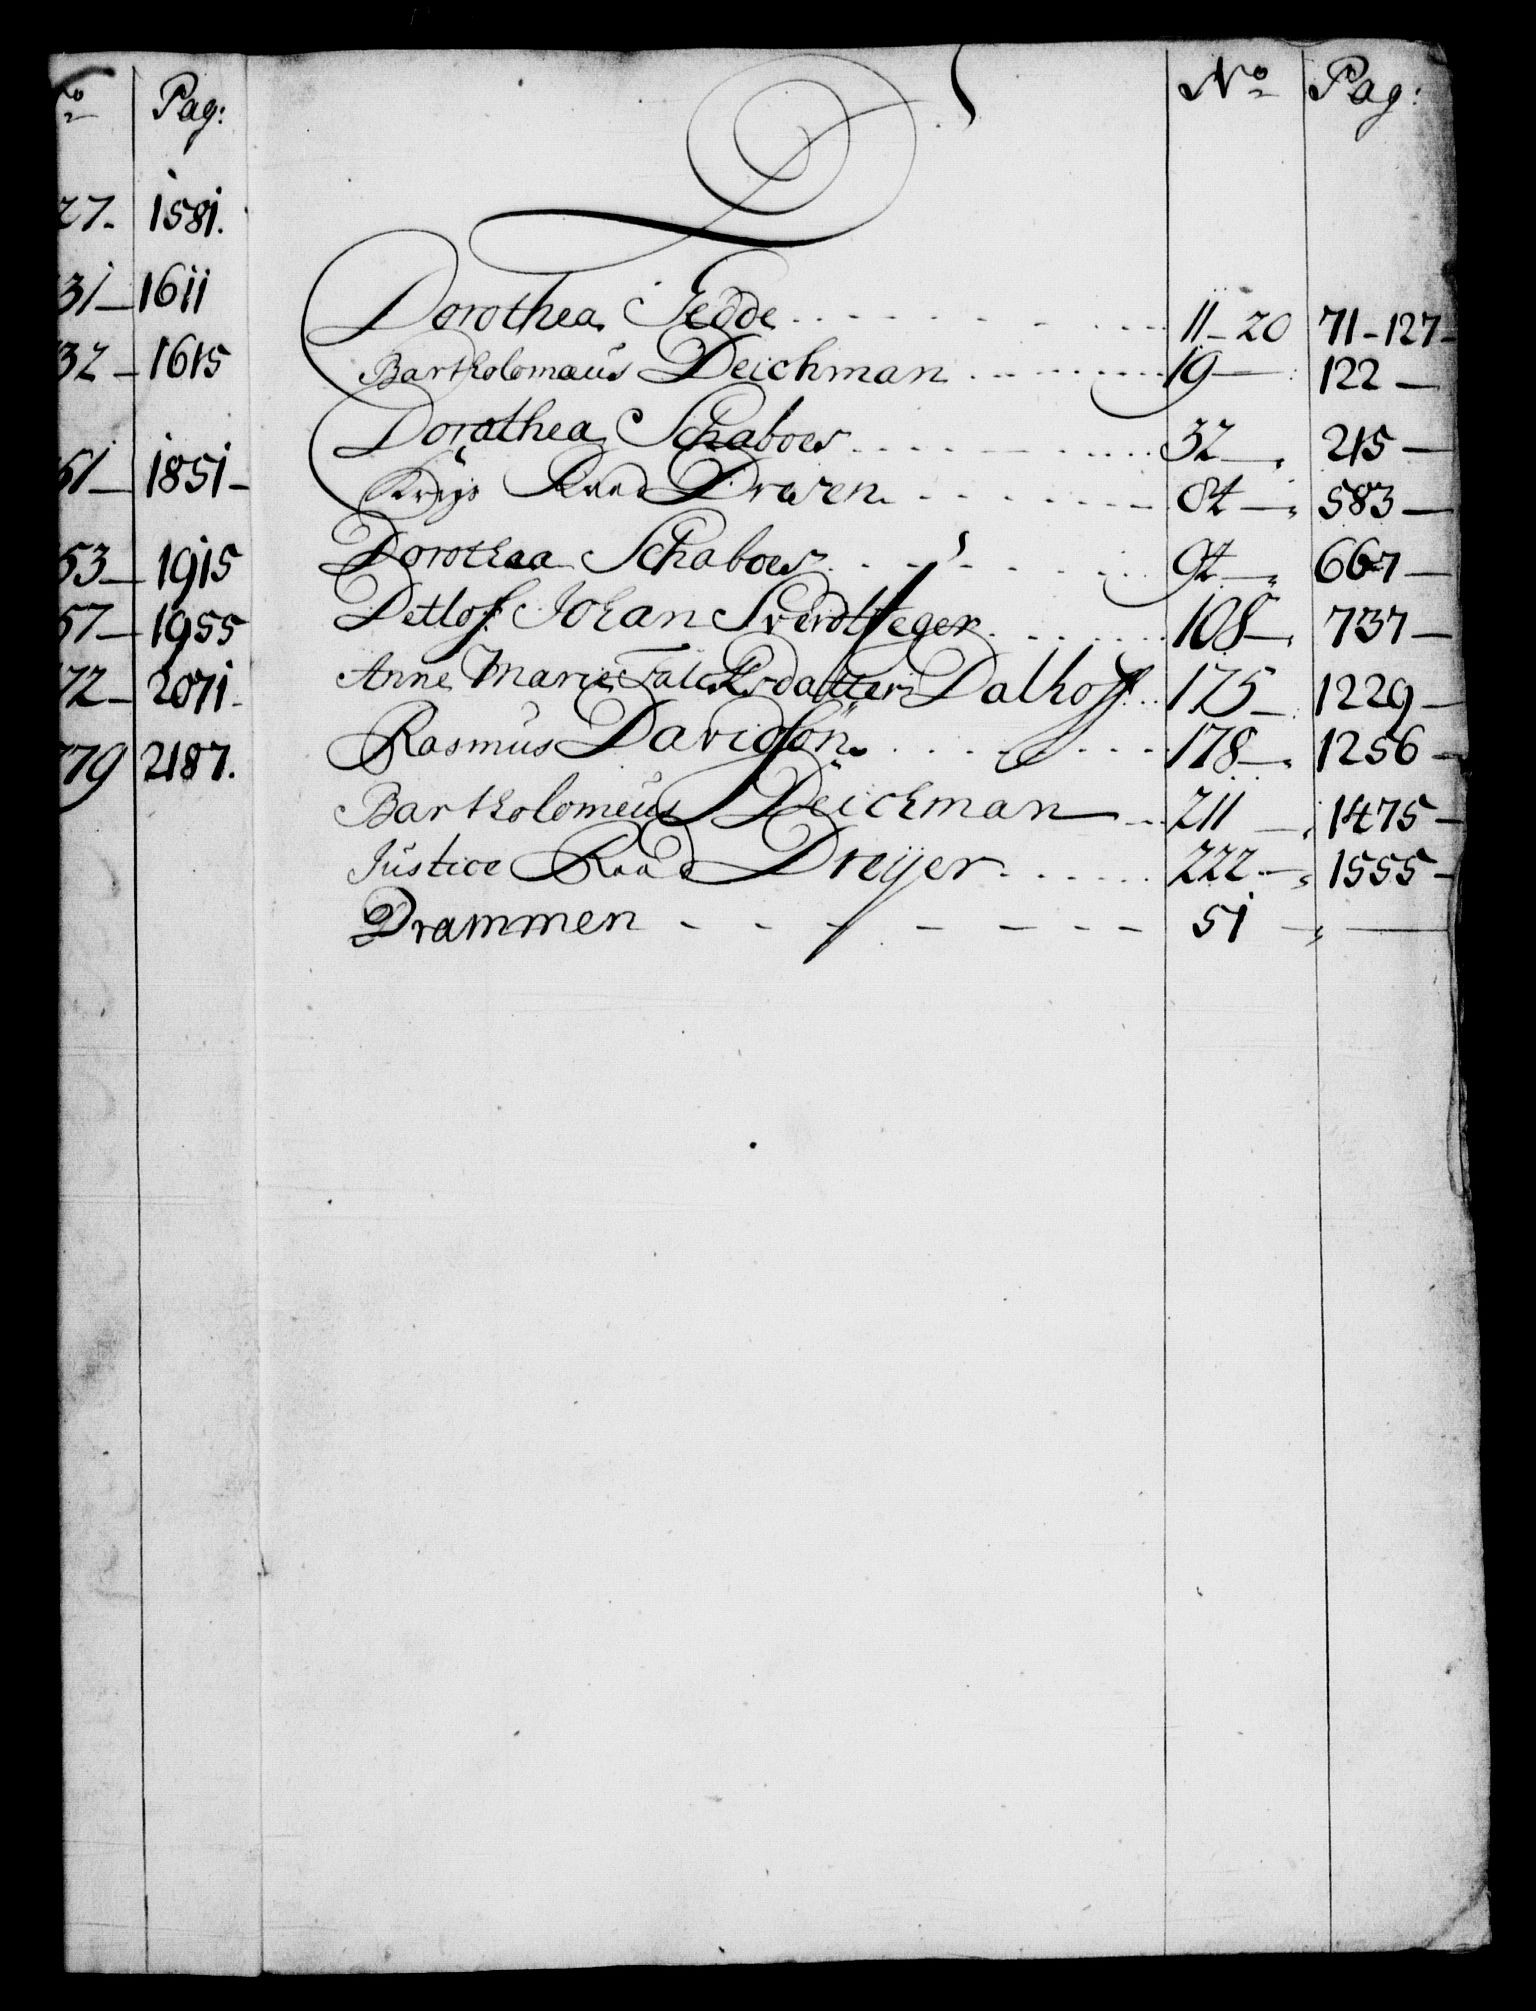 Pag:
27. 1581.
31 1611
32 1615
51 1851
53 1915
57 1955
72 2071
779 2187.
D
No Pag:
Dorothea Gedde 11-20 71-127
Bartholomæus Deichman 19 122
Dorothea Schaboes 32 215
Krigs Raad Drasen 84 583
Dorothea Schaboes 94 667
Detlof Johan Sverdtfeger 108 737
Anne Marie Falcksdatter Dalhoff 175 1229
Rasmus Davidsøn 178 1256
Bartholomeus Deichman 211 1475
Justice Raad Dreÿer 222 1555
Drammen 51